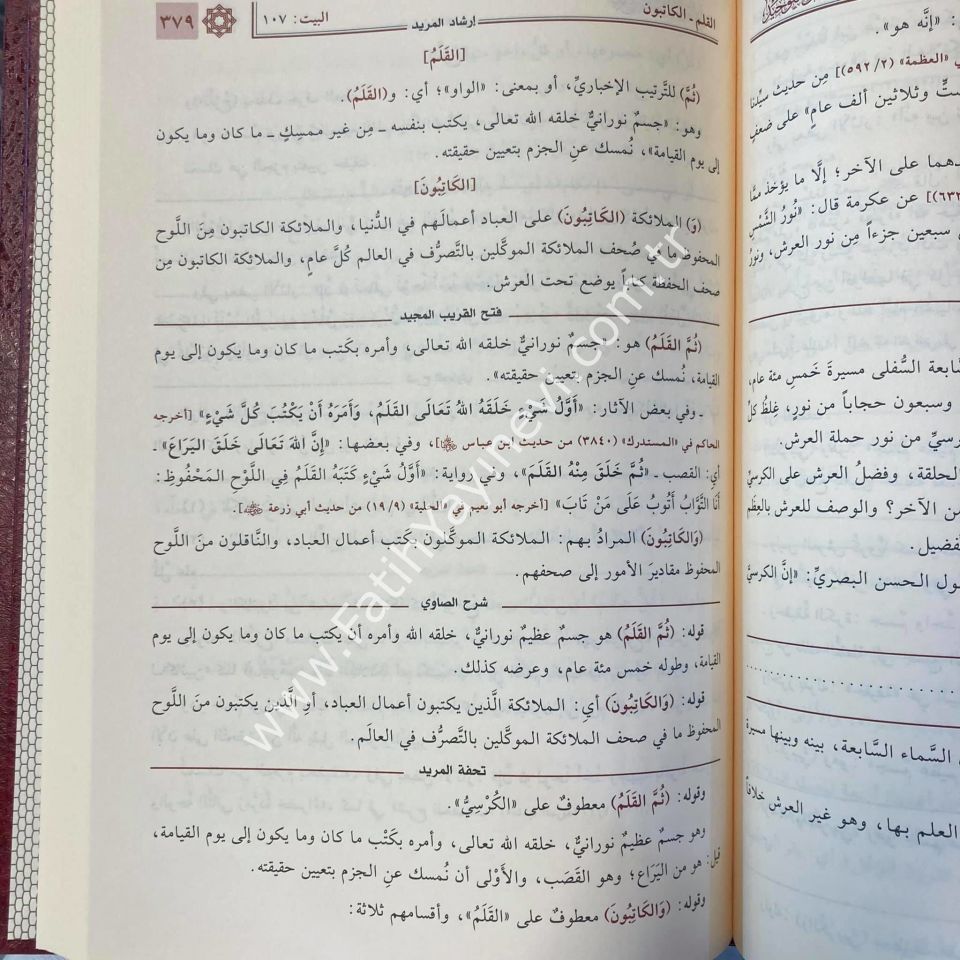 القلم - الكاتبون
إرشاد المريد
البيت: ١٠٧
٣٧٩
[القَلَمُ]
(ثُمَّ) للتَّرتيب الإخباريِّ، أو بمعنى: «الواو»؛ أي: و(القَلَمُ).
وهو: «جسمٌ نورانيٌّ خلقه الله تعالى، يكتب بنفسه ـ مِن غير ممسِكٍ ـ ما كان وما يكون
إلى يوم القيامة»، نُمسك عنِ الجزم بتعيين حقيقته.
[الكَاتِبُونَ]
(وَ) الملائكة (الكَاتِبُونَ) على العباد أعمالَهم في الدُّنيا، والملائكة الكاتبون مِنَ اللَّوح
المحفوظ ما في صُحف الملائكة الموكَّلين بالتَّصرُّف في العالم كُلَّ عامٍ، والملائكة الكاتبون مِن
صحف الحفظة كتاباً يوضع تحت العرش.
فتح القريب المجيد
(ثُمَّ القَلَمُ) هو: «جسمٌ نورانيٌّ خلقه الله تعالى، وأمره بكَتب ما كان وما يكون إلى يوم
القيامة، نُمسك عنِ الجزم بتعيين حقيقته».
ـ وفي بعض الآثار: «أَوَّلُ شَيْءٍ خَلَقَهُ اللهُ تَعَالَى القَلَمُ، وَأَمَرَهُ أَنْ يَكْتُبَ كُلَّ شَيْءٍ» [أخرجه
الحاكم في «المستدرك» (٣٨٤٠) من حديث ابن عباس ﷺ]، وفي بعضها: «إِنَّ اللهَ تَعَالَى خَلَقَ اليَرَاعَ» ـ
أي: القصب ـ «ثُمَّ خَلَقَ مِنْهُ القَلَمَ»، وفي رواية: «أَوَّلُ شَيْءٍ كَتَبَهُ القَلَمُ فِي اللَّوْحِ المَحْفُوظِ:
أَنَا التَّوَّابُ أَتُوبُ عَلَى مَنْ تَابَ» [أخرجه أبو نعيم في «الحلية» (١٩/٩) من حديث أبي زرعة].
(وَالكَاتِبُونَ) المرادُ بهم: الملائكة الموكَّلون بكَتب أعمال العباد، والنَّاقلون منَ اللَّوح
المحفوظ مقاديرَ الأمور إلى صحفهم.
شرح الصاوي
قوله: (ثُمَّ القَلَمُ) هو جسمٌ عظيمٌ نورانيٌّ، خلقه الله وأمره أن يكتب ما كان وما يكون إلى يوم
القيامة، وطوله خمس مئة عام، وعرضه كذلك.
قوله: (وَالكَاتِبُونَ) أيِ: الملائكة الَّذين يكتبون أعمال العباد، أوِ الَّذين يكتبون منَ اللَّوح
المحفوظ ما في صحف الملائكة الموكَّلين بالتَّصرُّف في العالَم.
تحفة المريد
وقوله: (ثُمَّ القَلَمُ) معطوفٌ على «الكُرْسِيُّ».
وهو جسمٌ عظيمٌ نورانيٌّ، خلقه الله تعالى، وأمره بكَتْب ما كان وما يكون إلى يوم القيامة،
قيل: هو من اليَرَاع؛ وهو القَصَب، والأَوْلى أن نُمسك عنِ الجزم بتعيين حقيقته.
وقوله: (وَالكَاتِبُونَ) معطوفٌ على «القَلَمُ»، وأقسامهم ثلاثة:
: «إنَّه هو».
«العظمة» (٥٩٢/٢)] مِن حديث سيِّدنا
ستٍّ وثلاثين ألف عامٍ» على ضعفٍ
دهما على الآخر؛ إلَّا ما يؤخذ ممَّا
عن عكرمة قال: «نُورُ الشَّمْسِ
سبعين جزءاً مِن نور العرش، ونورُ
السُّفلى مسيرةَ خَمسِ مئة عام،
وسبعون حجاباً من نورٍ، غِلظُ كلِّ
من نور حملة العرش.
الحلقة، وفضلُ العرش على الكرسيِّ
من الآخر؟ والوصف للعرش بالعِظَمِ
ول الحسن البصريِّ: «إنَّ الكرسيَّ
السَّماء السَّابعة، بينه وبينها مسيرة
العلم بها، وهو غير العرش خلافاً
www.FatihYayinevi.com.tr